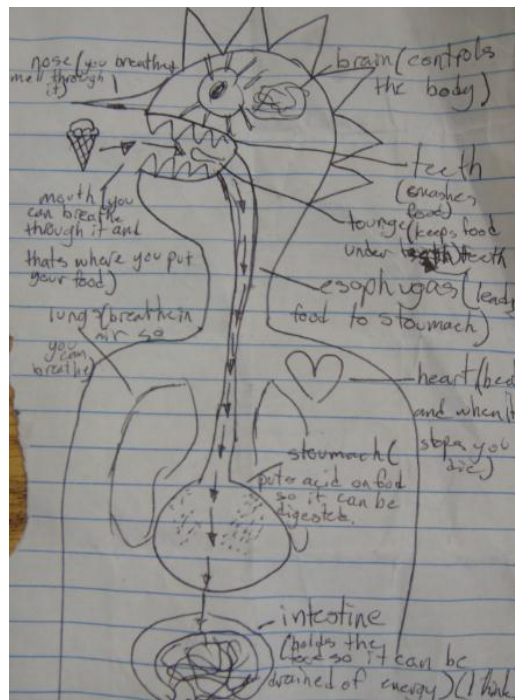 nose (you breathe,
mell through
it)
brain (controls
the body)
teeth
(smashes
food)
tounge (keeps food
under teeth)
mouth (you
can breathe
through it and
thats where you put
your food)
esophugas (leads
food to stoumach)
lungs (breathe in
air so
you can
breathe)
heart (bea
and when it
stops, you
die)
stoumach (
puts acid on food
so it can be
digested.
intestine
(holds the
so it can be
drained of energy) (I think